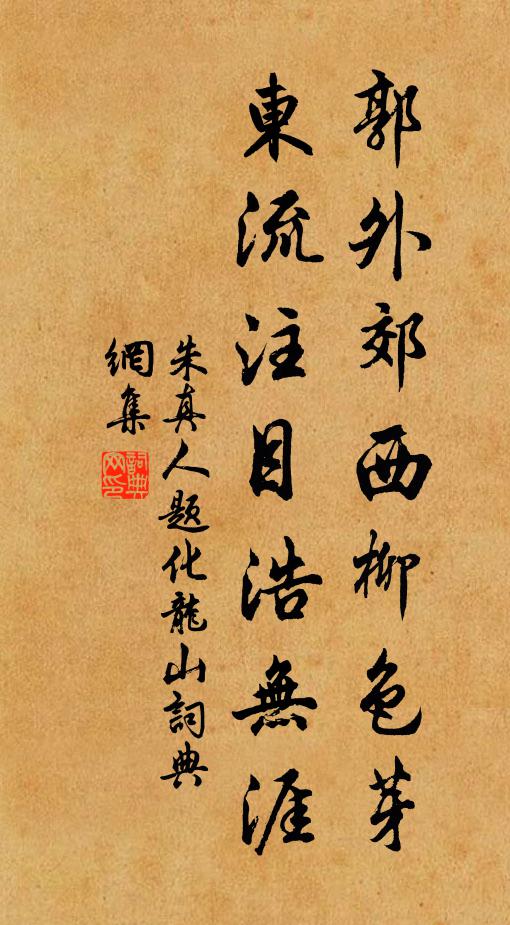 郭外郊西柳色芽
東流注目浩無涯
朱真人題化龍山詞典
網集
詞典
网印